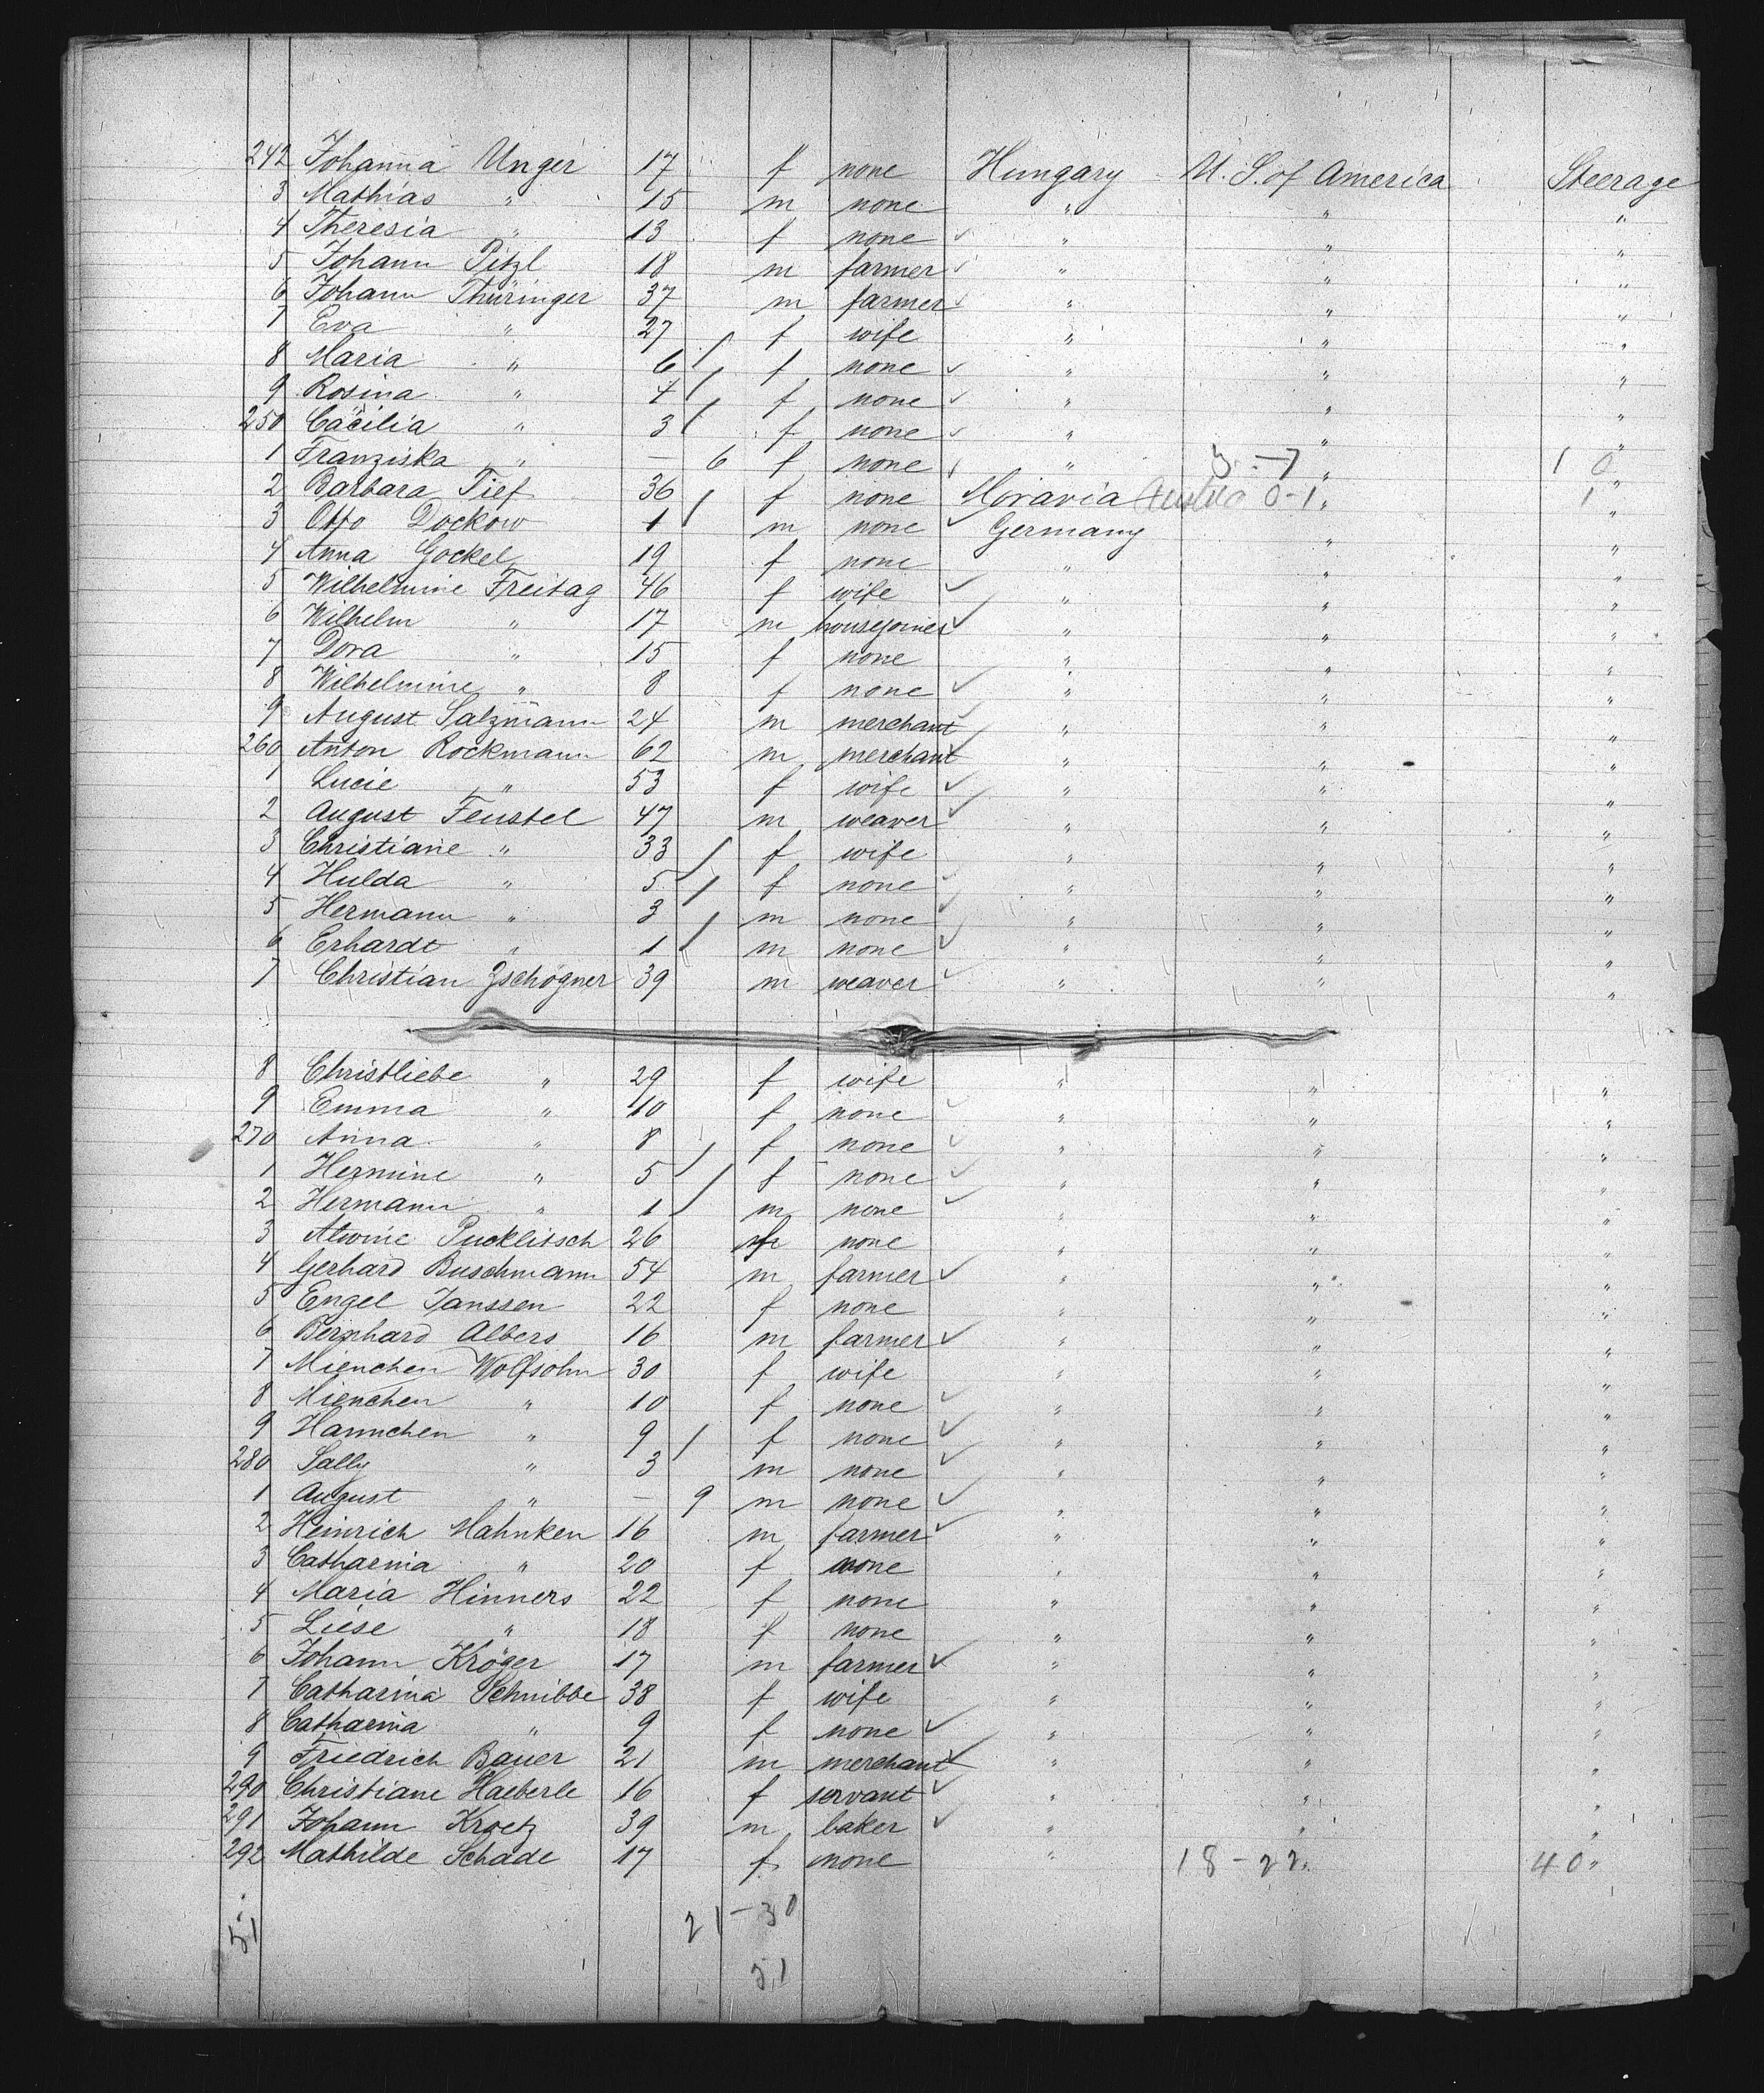 242 Johanna Unger 17 f none Hungary U. S. of America Steerage
3 Mathias " 15 m none " " "
4 Theresia " 13 f none " " "
5 Johann Pitzl 18 m farmer " " "
6 Johann Thüringer 37 m farmer " " "
7 Eva " 27 f wife " " "
8 Maria " 6 f none " " "
9 Rosina " 4 f none " " "
250 Cäcilia " 3 f none " " "
1 Franziska " — 6 f none " 3 - 7 " 10 "
2 Barbara Tief 36 f none Moravia Austria 0-1 " 1 "
3 Otto Dockow 1 m none Germany " "
4 Anna Gockel 19 f none " " "
5 Wilhelmine Freitag 46 f wife " " "
6 Wilhelm " 17 m housejoiner " " "
7 Dora " 15 f none " " "
8 Wilhelmine " 8 f none " " "
9 August Salzmann 24 m merchant " " "
260 Anton Rockmann 62 m merchant " " "
1 Lucie " 53 f wife " " "
2 August Feustel 47 m weaver " " "
3 Christiane " 33 f wife " " "
4 Hulda " 5 f none " " "
5 Hermann " 3 m none " " "
6 Erhardt " 1 m none " " "
7 Christian Zschögner 39 m weaver " " "
8 Christliebe " 29 f wife " " "
9 Emma " 10 f none " " "
270 Anna " 8 f none " " "
1 Hermine " 5 f none " " "
2 Hermann " 1 m none " " "
3 Alwine Pucklitsch 26 f none " " "
4 Gerhard Buschmann 54 m farmer " " "
5 Engel Janssen 22 f none " " "
6 Bernhard Albers 16 m farmer " " "
7 Mienchen Wolfsohn 30 f wife " " "
8 Mienchen " 10 f none " " "
9 Hannchen " 9 f none " " "
280 Sally " 3 m none " " "
1 August " — 9 m none " " "
2 Heinrich Mahnken 16 m farmer " " "
3 Catharina " 20 f none " " "
4 Maria Hinners 22 f none " " "
5 Liese " 18 f none " " "
6 Johann Kröger 17 m farmer " " "
7 Catharina Schnibbe 38 f wife " " "
8 Catharina " 9 f none " " "
9 Friedrich Bauer 21 m merchant " " "
290 Christiane Haeberle 16 f servant " " "
291 Johann Kroetz 39 m baker " " "
292 Mathilde Schade 17 f none " 18 - 22 " 40 "
51 21 - 30
51